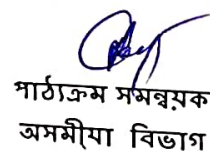 পাঠ্যক্ৰম সমন্বয়ক
অসমীয়া বিভাগ